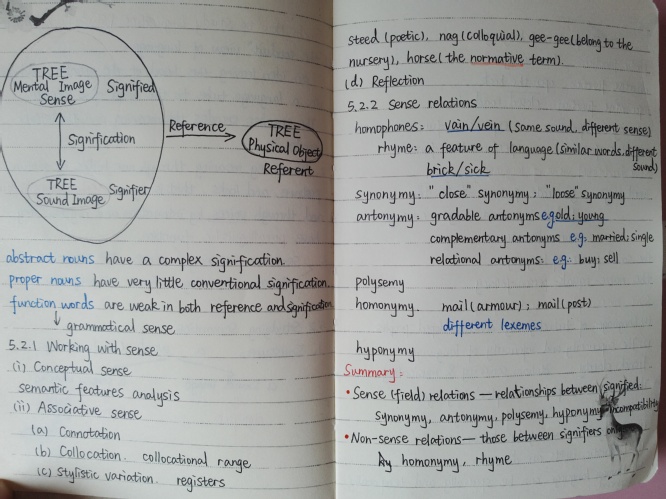 TREE
Mental Image
Sense
Signified
Signification
TREE
Sound Image
Signifier
Reference
TREE
Physical Object
Referent
abstract nouns have a complex signification.
proper nouns have very little conventional signification.
function words are weak in both reference and signification.
grammatical sense
5.2.1 Working with sense
(i) Conceptual sense
semantic features analysis
(ii) Associative sense
(a) Connotation
(b) Collocation. collocational range
(c) Stylistic variation. registers
steed (poetic), nag (colloquial), gee-gee (belong to the
nursery), horse (the normative term).
(d) Reflection
5.2.2 Sense relations
homophones: vain/vein (same sound, different sense)
rhyme: a feature of language (similar words, different
sound)
brick/sick
synonymy: "close" synonymy; "loose" synonymy
antonymy: gradable antonyms e.g. old; young
complementary antonyms e.g: married; single
relational antonyms: e.g. buy; sell
polysemy
homonymy. mail (armour); mail (post)
different lexemes
hyponymy
Summary:
• Sense (field) relations — relationships between signified:
synonymy, antonymy, polysemy, hyponymy, incompatibility
• Non-sense relations — those between signifiers only
homonymy, rhyme